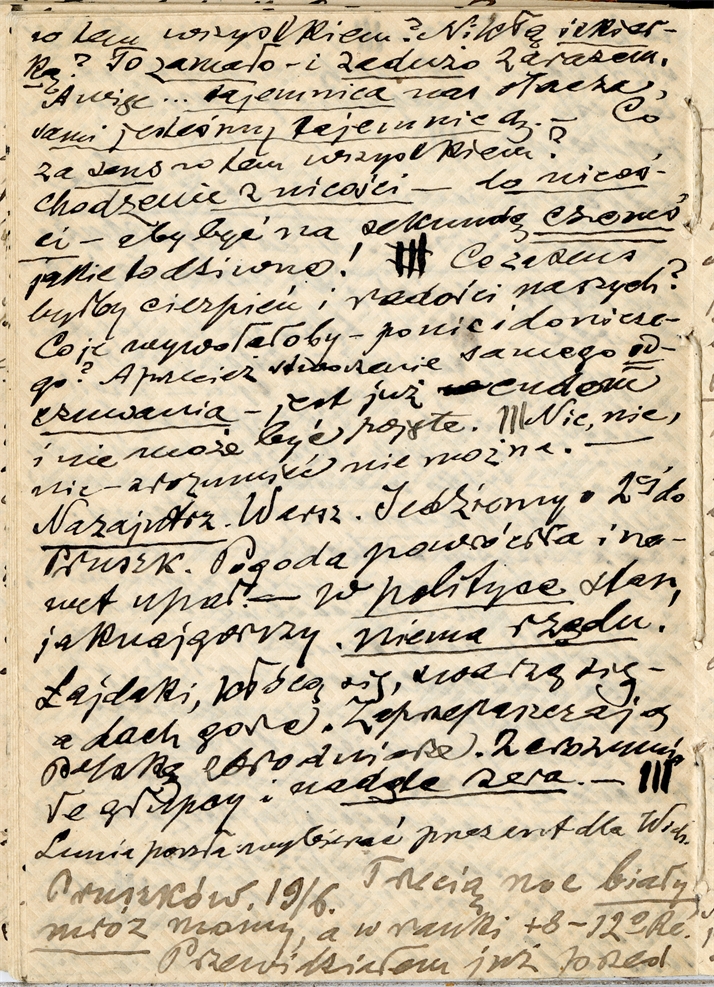 w tem wszystkiem? Nikłą iskier-
ką? To zamało – i zadużo zarazem.
A więc... tajemnica nas otacza,
sami jesteśmy tajemnicą. – Co
za sens w tem wszystkiem?
chodzenie z nicości – do nicoś-
ci – aby być na sekundę czemuś
jakie to dziwne! Co za sens
byłby cierpień i radości naszych?
Co je wywołałoby – po nic i do nicze-
go? A przecież stworzenie samego od-
czuwania – jest już cudem
i nie może być pojęte. Nic, nic,
nic – zrozumieć nie można. –
Nazajutrz. Warsz. Jedziemy o 2ej do
Pruszk. Pogoda powróciła i na-
wet upał. – W polityce stan,
jaknajgorszy. niema rządu.
Łajdaki, kłócą się, swarzą się –
a dach gore. Zaprzepaszczają
Polskę zbrodniarze. Zarozumia-
łe głupcy i nadęte zera. –
Lunia poszła wybierać prezent dla
Pruszków. 19/6. Trzecią noc biały
mróz mamy, a w ranki +8–12° Re.
Przewidziałem już przed